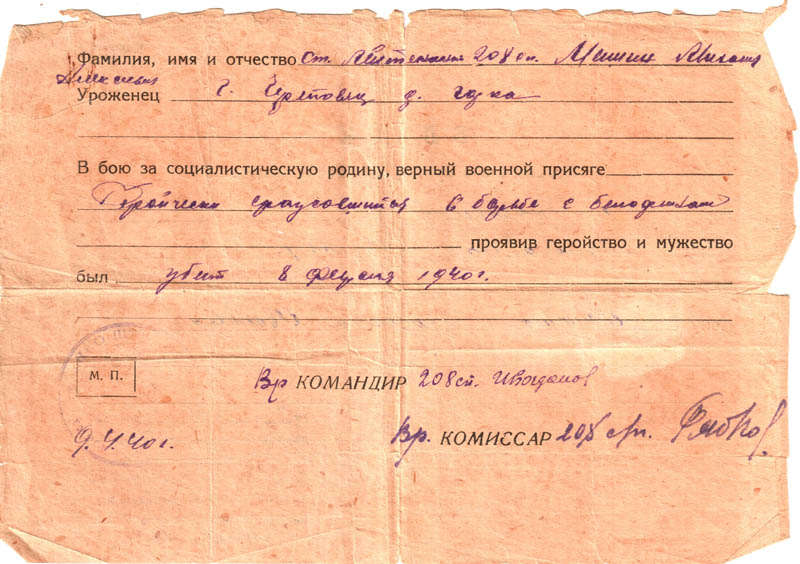 Фамилия, имя и отчество Ст. Лейтенант 208 сп. Мишин Михаил
Уроженец г. Череповец д.
В бою за социалистическую родину, верный военной присяге
Геройски сражавшийся в борьбе с белофинами
проявив геройство и мужество
был убит 8 февраля 1940г.
М. П.
Вр КОМАНДИР 208 сп.
9.4.40г. Вр. КОМИССАР 208 сп.